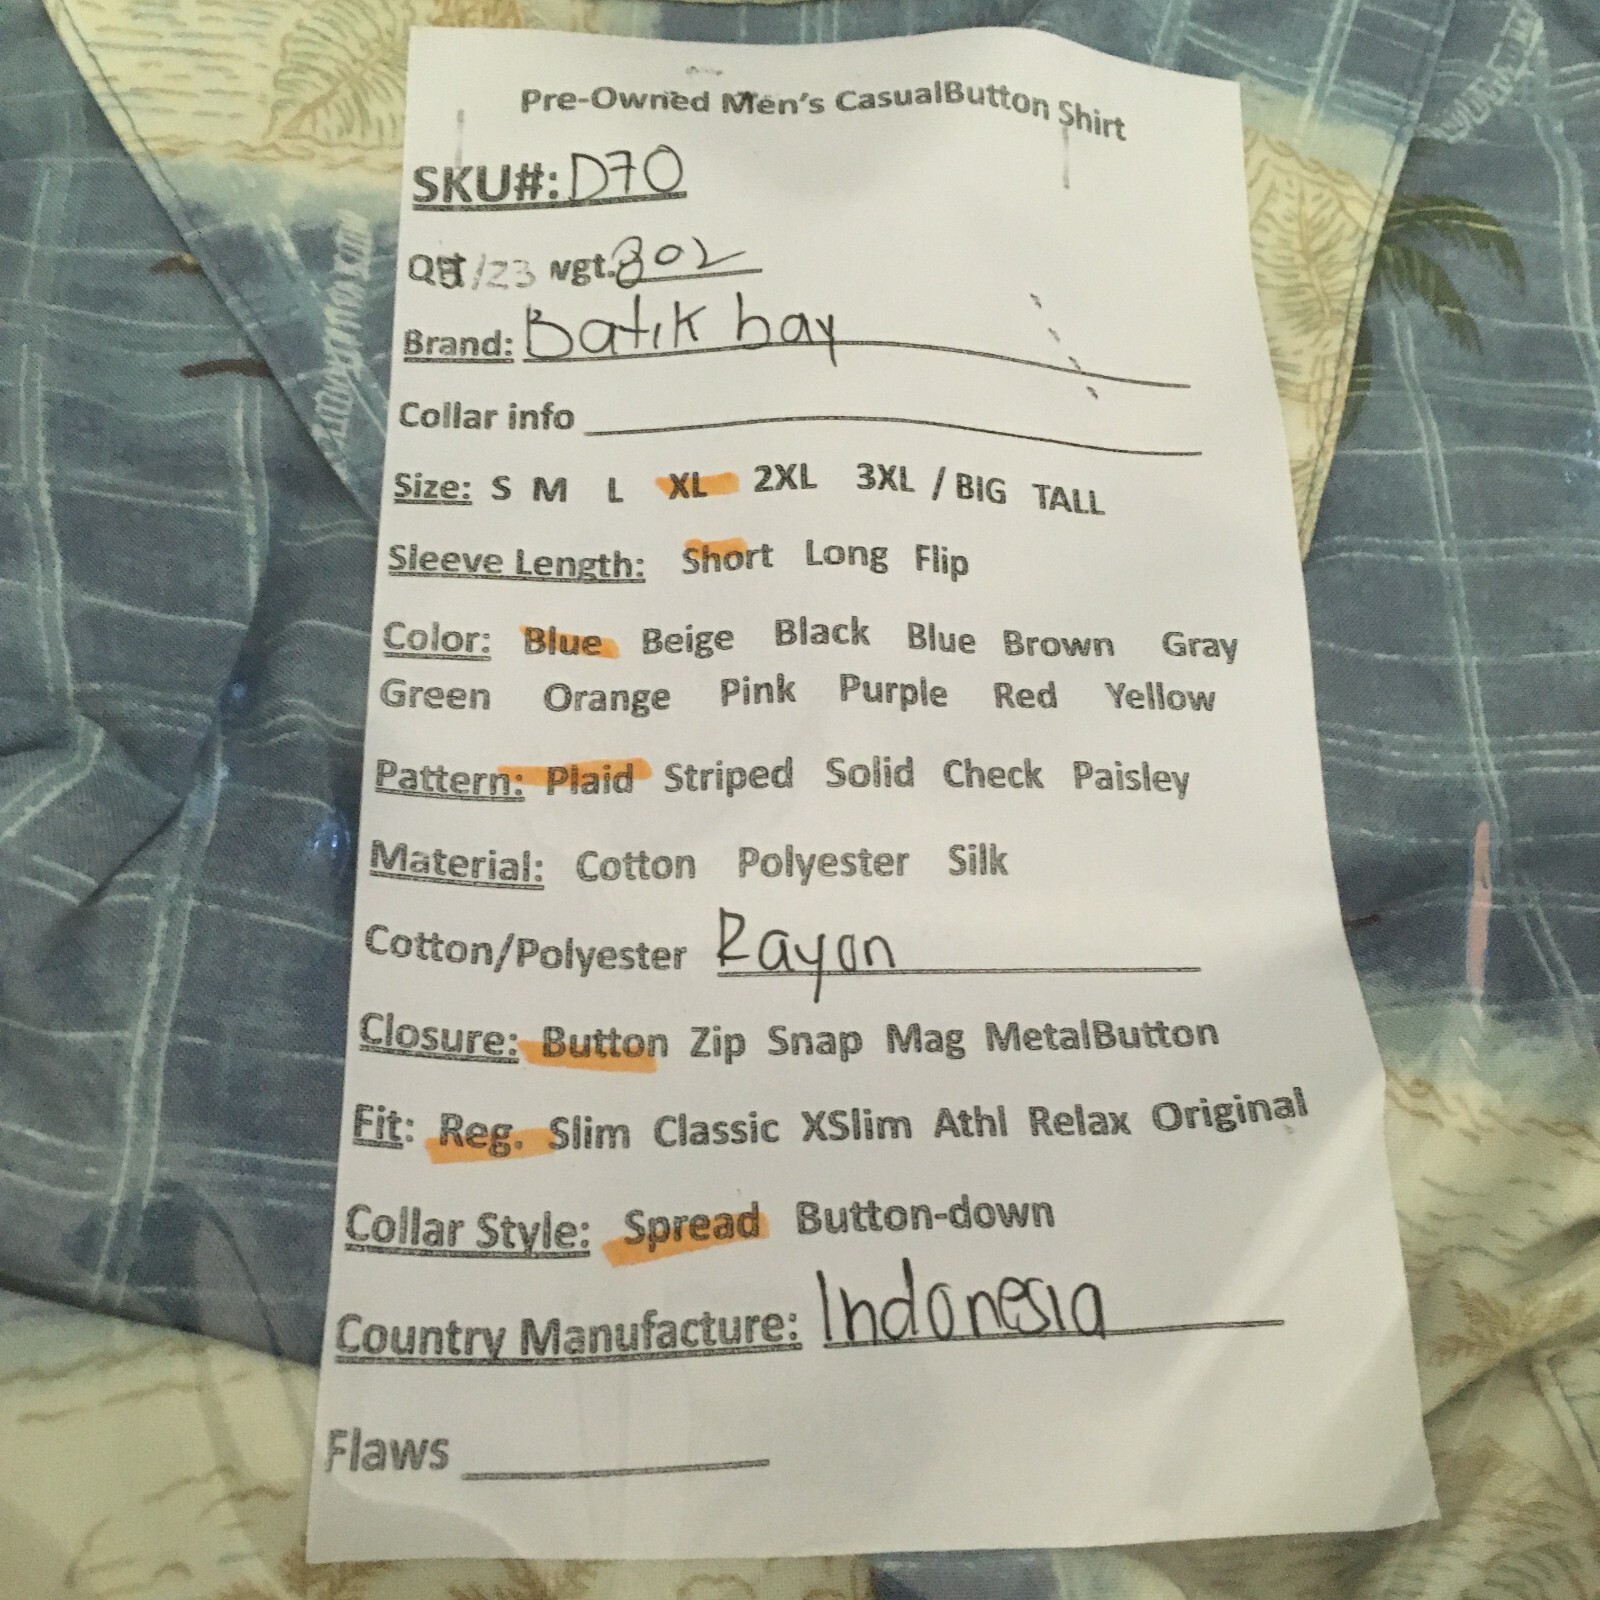 Pre-Owned Men's CasualButton Shirt
SKU#: D70
/23 wgt. 8oz
Brand: Batik bay
Collar info
Size: S M L XL 2XL 3XL / BIG TALL
Sleeve Length: Short Long Flip
Color: Blue Beige Black Blue Brown Gray
Green Orange Pink Purple Red Yellow
Pattern: Plaid Striped Solid Check Paisley
Material: Cotton Polyester Silk
Cotton/Polyester Rayon
Closure: Button Zip Snap Mag MetalButton
Fit: Reg. Slim Classic XSlim Athl Relax Original
Collar Style: Spread Button-down
Country Manufacture: Indonesia
Flaws